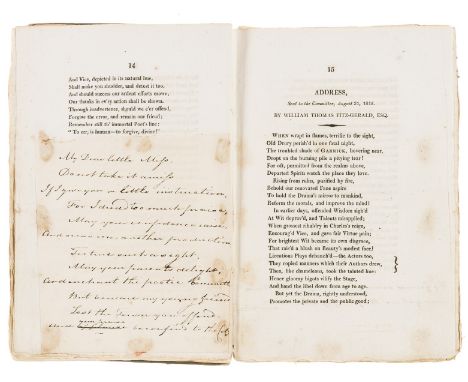 14
And Vice, depicted in its natural hue,
Shall make you shudder, and detest it too.
And should success our ardent efforts crown,
Our thanks in ev'ry action shall be shown.
Through inadvertence, should we e'er offend,
Forgive the error, and remain our friend;
Remember still th' immortal Poet's line:
"To err, is human—to forgive, divine!"
My Dear little Miss
Do not take it amiss
If I give you a little instruction
For I should
May your confidence
And another production
To a sight
May your power to delight
And enchant the poetic Committee
But beware my young friend
Lest the you offend
your
And to the
15
ADDRESS,
Sent to the Committee, August 31, 1812.
BY WILLIAM THOMAS FITZ-GERALD, ESQ.
WHEN wrapt in flames, terrific to the sight,
Old Drury perish'd in one fatal night,
The troubled shade of GARRICK, hovering near,
Dropt on the burning pile a pitying tear!
For oft, permitted from the realms above,
Departed Spirits watch the place they love.
Rising from ruins, purified by fire,
Behold our renovated Fane aspire
To hold the Drama's mirror to mankind,
Reform the morals, and improve the mind!
In earlier days, offended Wisdom sigh'd
At Wit deprav'd, and Talents misapplied;
When grossest ribaldry in Charles's reign,
Encourag'd Vice, and gave fair Virtue pain;
For brightest Wit became its own disgrace,
That rais'd a blush on Beauty's modest face!
Licentious Plays debauch'd—the Actors too,
They copied manners which their Authors drew,
Then, like chameleons, took the tainted hue:
Hence gloomy bigots vilify the Stage,
And hand the libel down from age to age.
But yet the Drama, rightly understood,
Promotes the private and the public good;